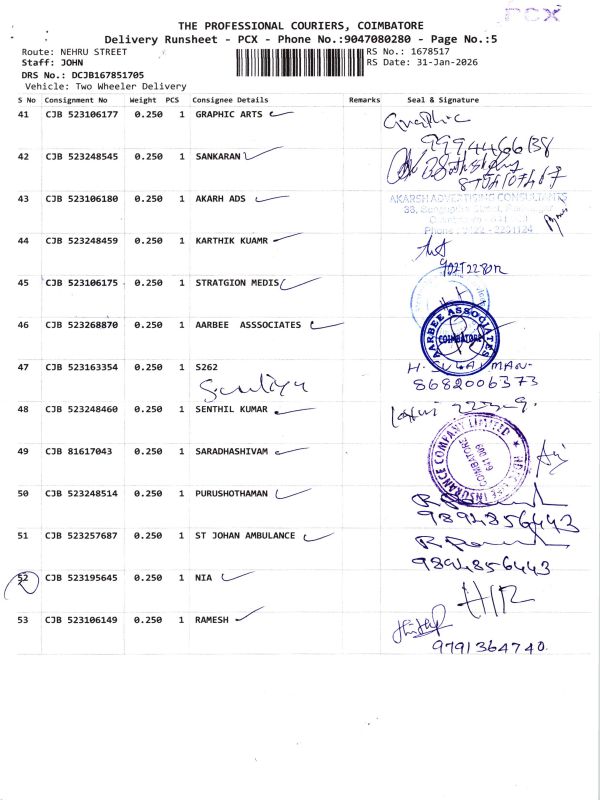 PCX
THE PROFESSIONAL COURIERS, COIMBATORE
Delivery Runsheet - PCX - Phone No.:9047080280 - Page No.:5
Route: NEHRU STREET
RS No.: 1678517
Staff: JOHN
RS Date: 31-Jan-2026
DRS No.: DCJB167851705
Vehicle: Two Wheeler Delivery
S No Consignment No Weight PCS Consignee Details Remarks Seal & Signature
41 CJB 523106177 0.250 1 GRAPHIC ARTS Graphic
9994466138
42 CJB 523248545 0.250 1 SANKARAN
43 CJB 523106180 0.250 1 AKARH ADS
AKARSH ADVERTISING CONSULTANTS
44 CJB 523248459 0.250 1 KARTHIK KUAMR
45 CJB 523106175 0.250 1 STRATGION MEDIS
46 CJB 523268870 0.250 1 AARBEE ASSSOCIATES
AARBEE ASSOCIATES
COIMBATORE
47 CJB 523163354 0.250 1 S262
8682006373
48 CJB 523248460 0.250 1 SENTHIL KUMAR
49 CJB 81617043 0.250 1 SARADHASHIVAM
INSURANCE COMPANY LIMITED
COIMBATORE
641 009
50 CJB 523248514 0.250 1 PURUSHOTHAMAN
9894856443
51 CJB 523257687 0.250 1 ST JOHAN AMBULANCE
9894856443
52 CJB 523195645 0.250 1 NIA
53 CJB 523106149 0.250 1 RAMESH
9791364740.